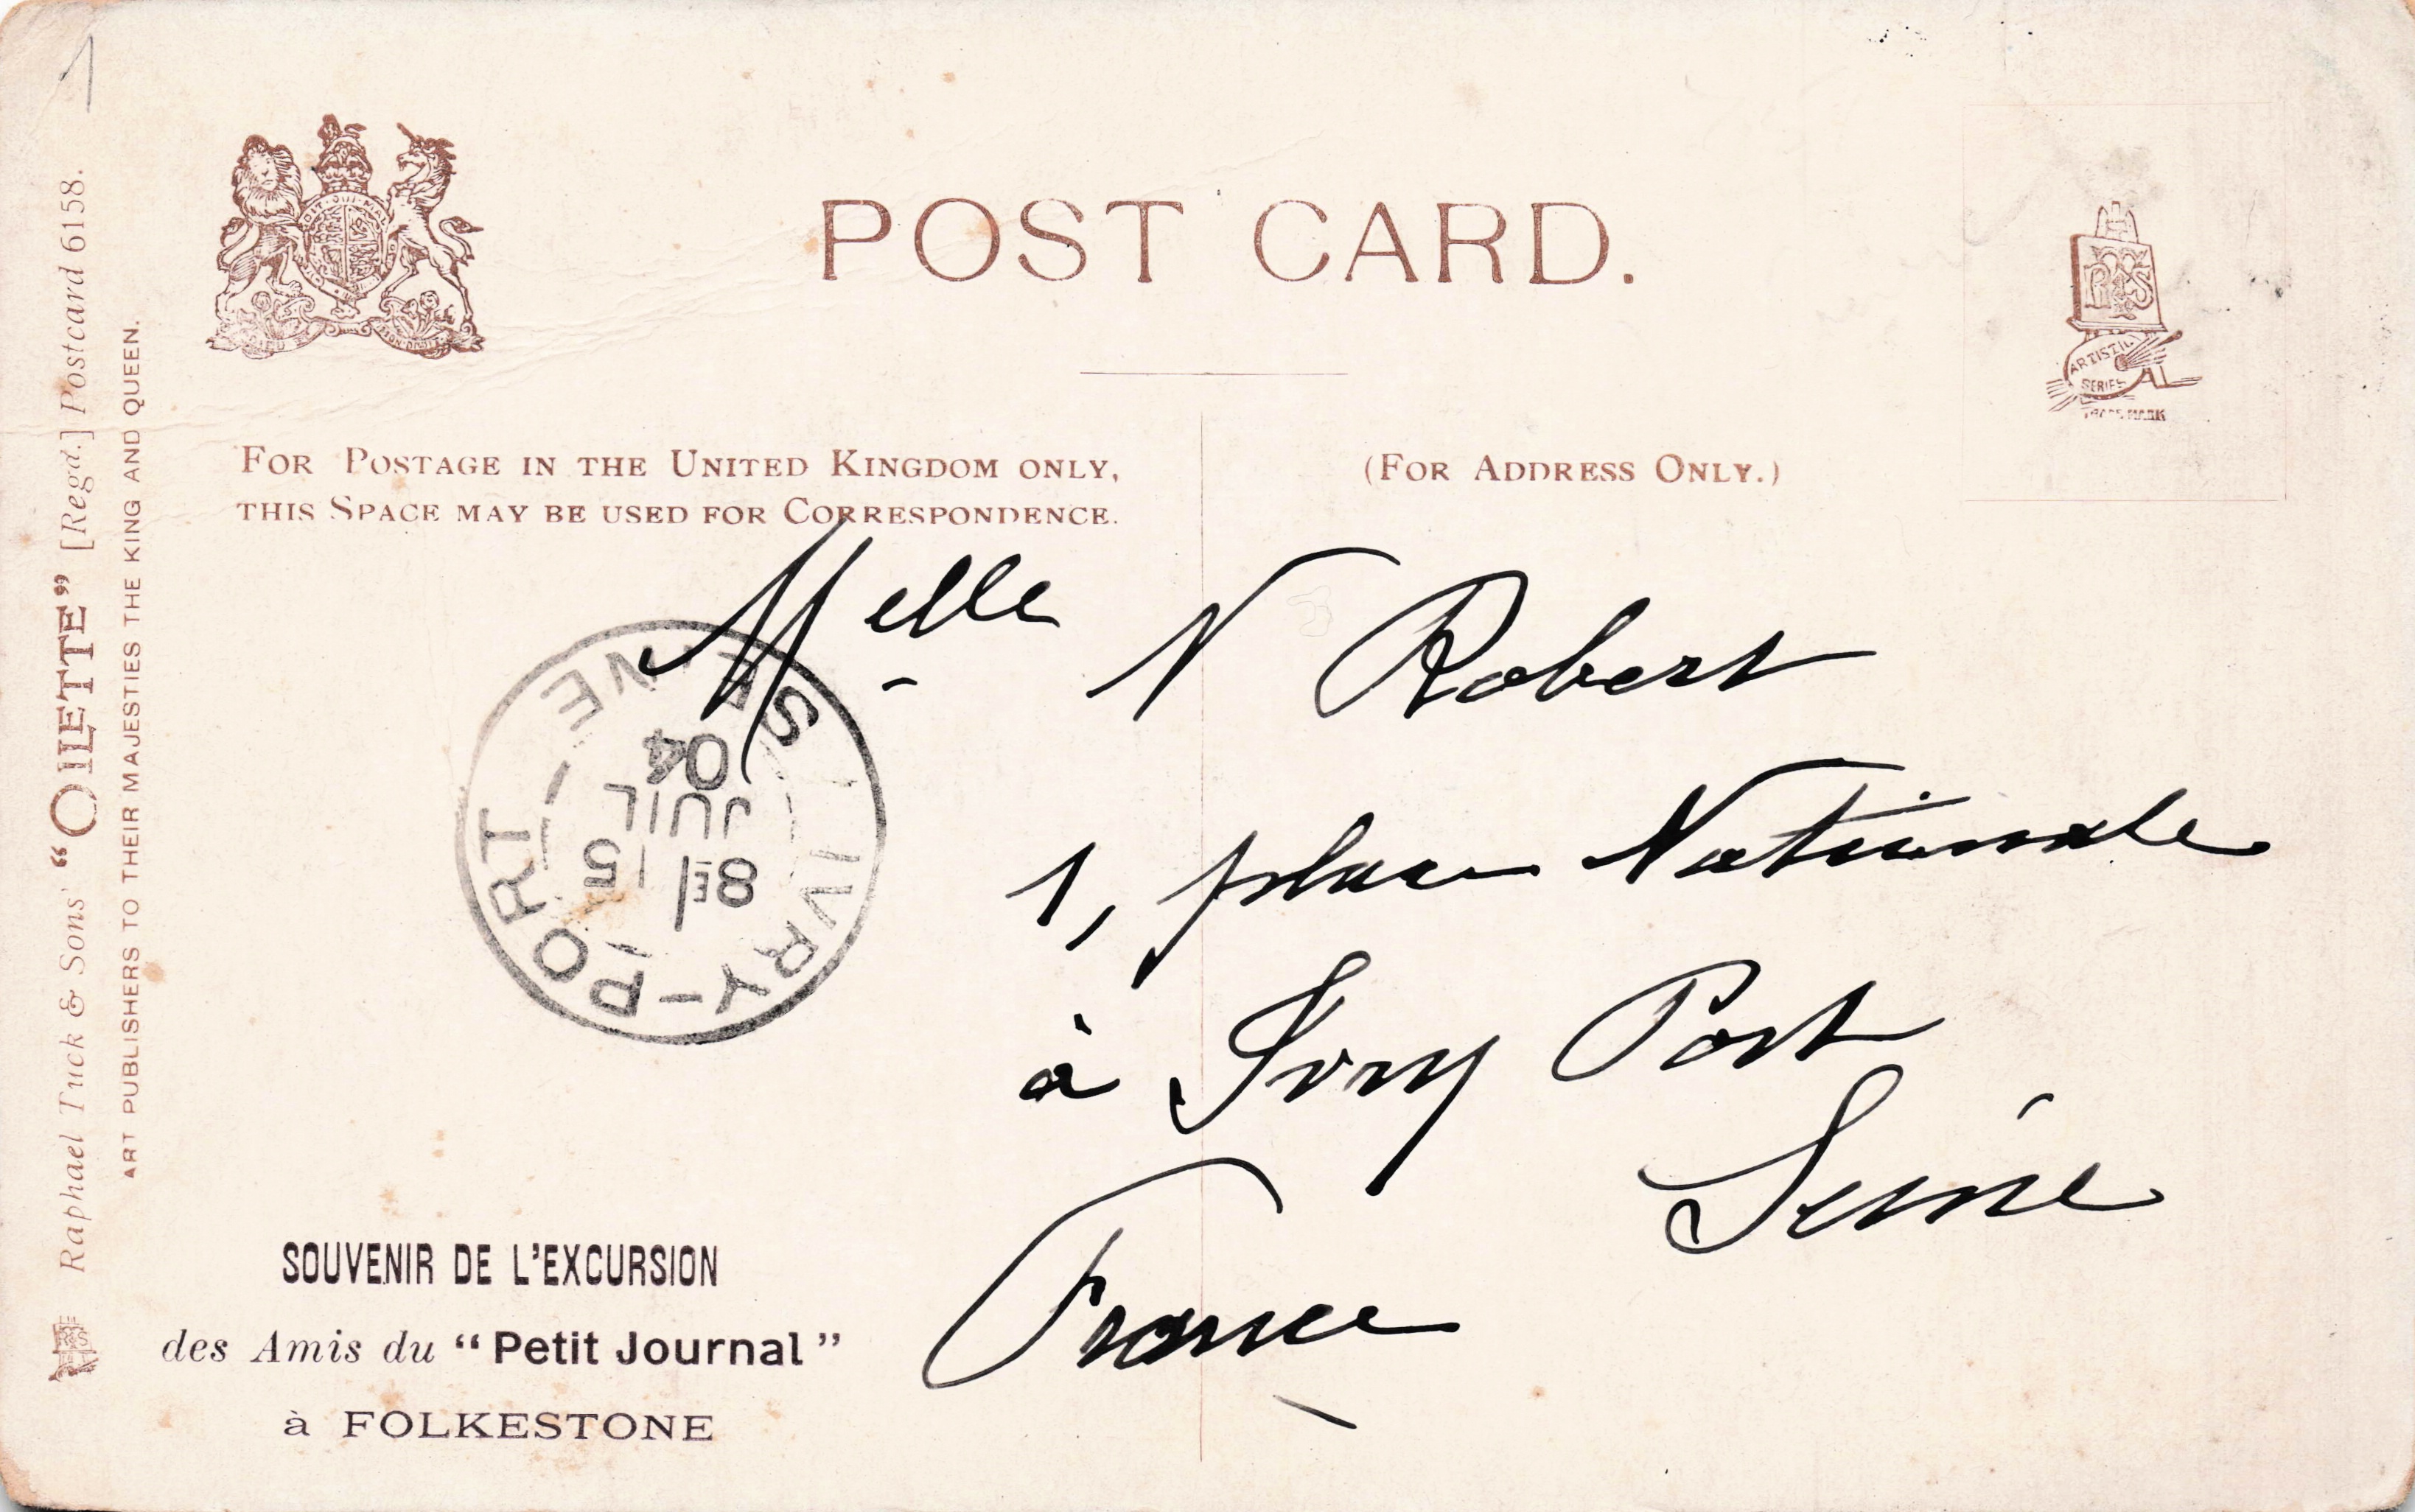 1
POST CARD.
FOR POSTAGE IN THE UNITED KINGDOM ONLY,
THIS SPACE MAY BE USED FOR CORRESPONDENCE.
(FOR ADDRESS ONLY.)
ARTISTIC
SERIES
TRADE MARK
Raphael Tuck & Sons' “OILETTE” [Regd.] Postcard 6158.
ART PUBLISHERS TO THEIR MAJESTIES THE KING AND QUEEN.
Melle N Robert
1, place Nationale
à Ivry Port
Seine
France
IVRY-PORT
8E 15
JUIL
04
SOUVENIR DE L'EXCURSION
des Amis du “Petit Journal”
à FOLKESTONE